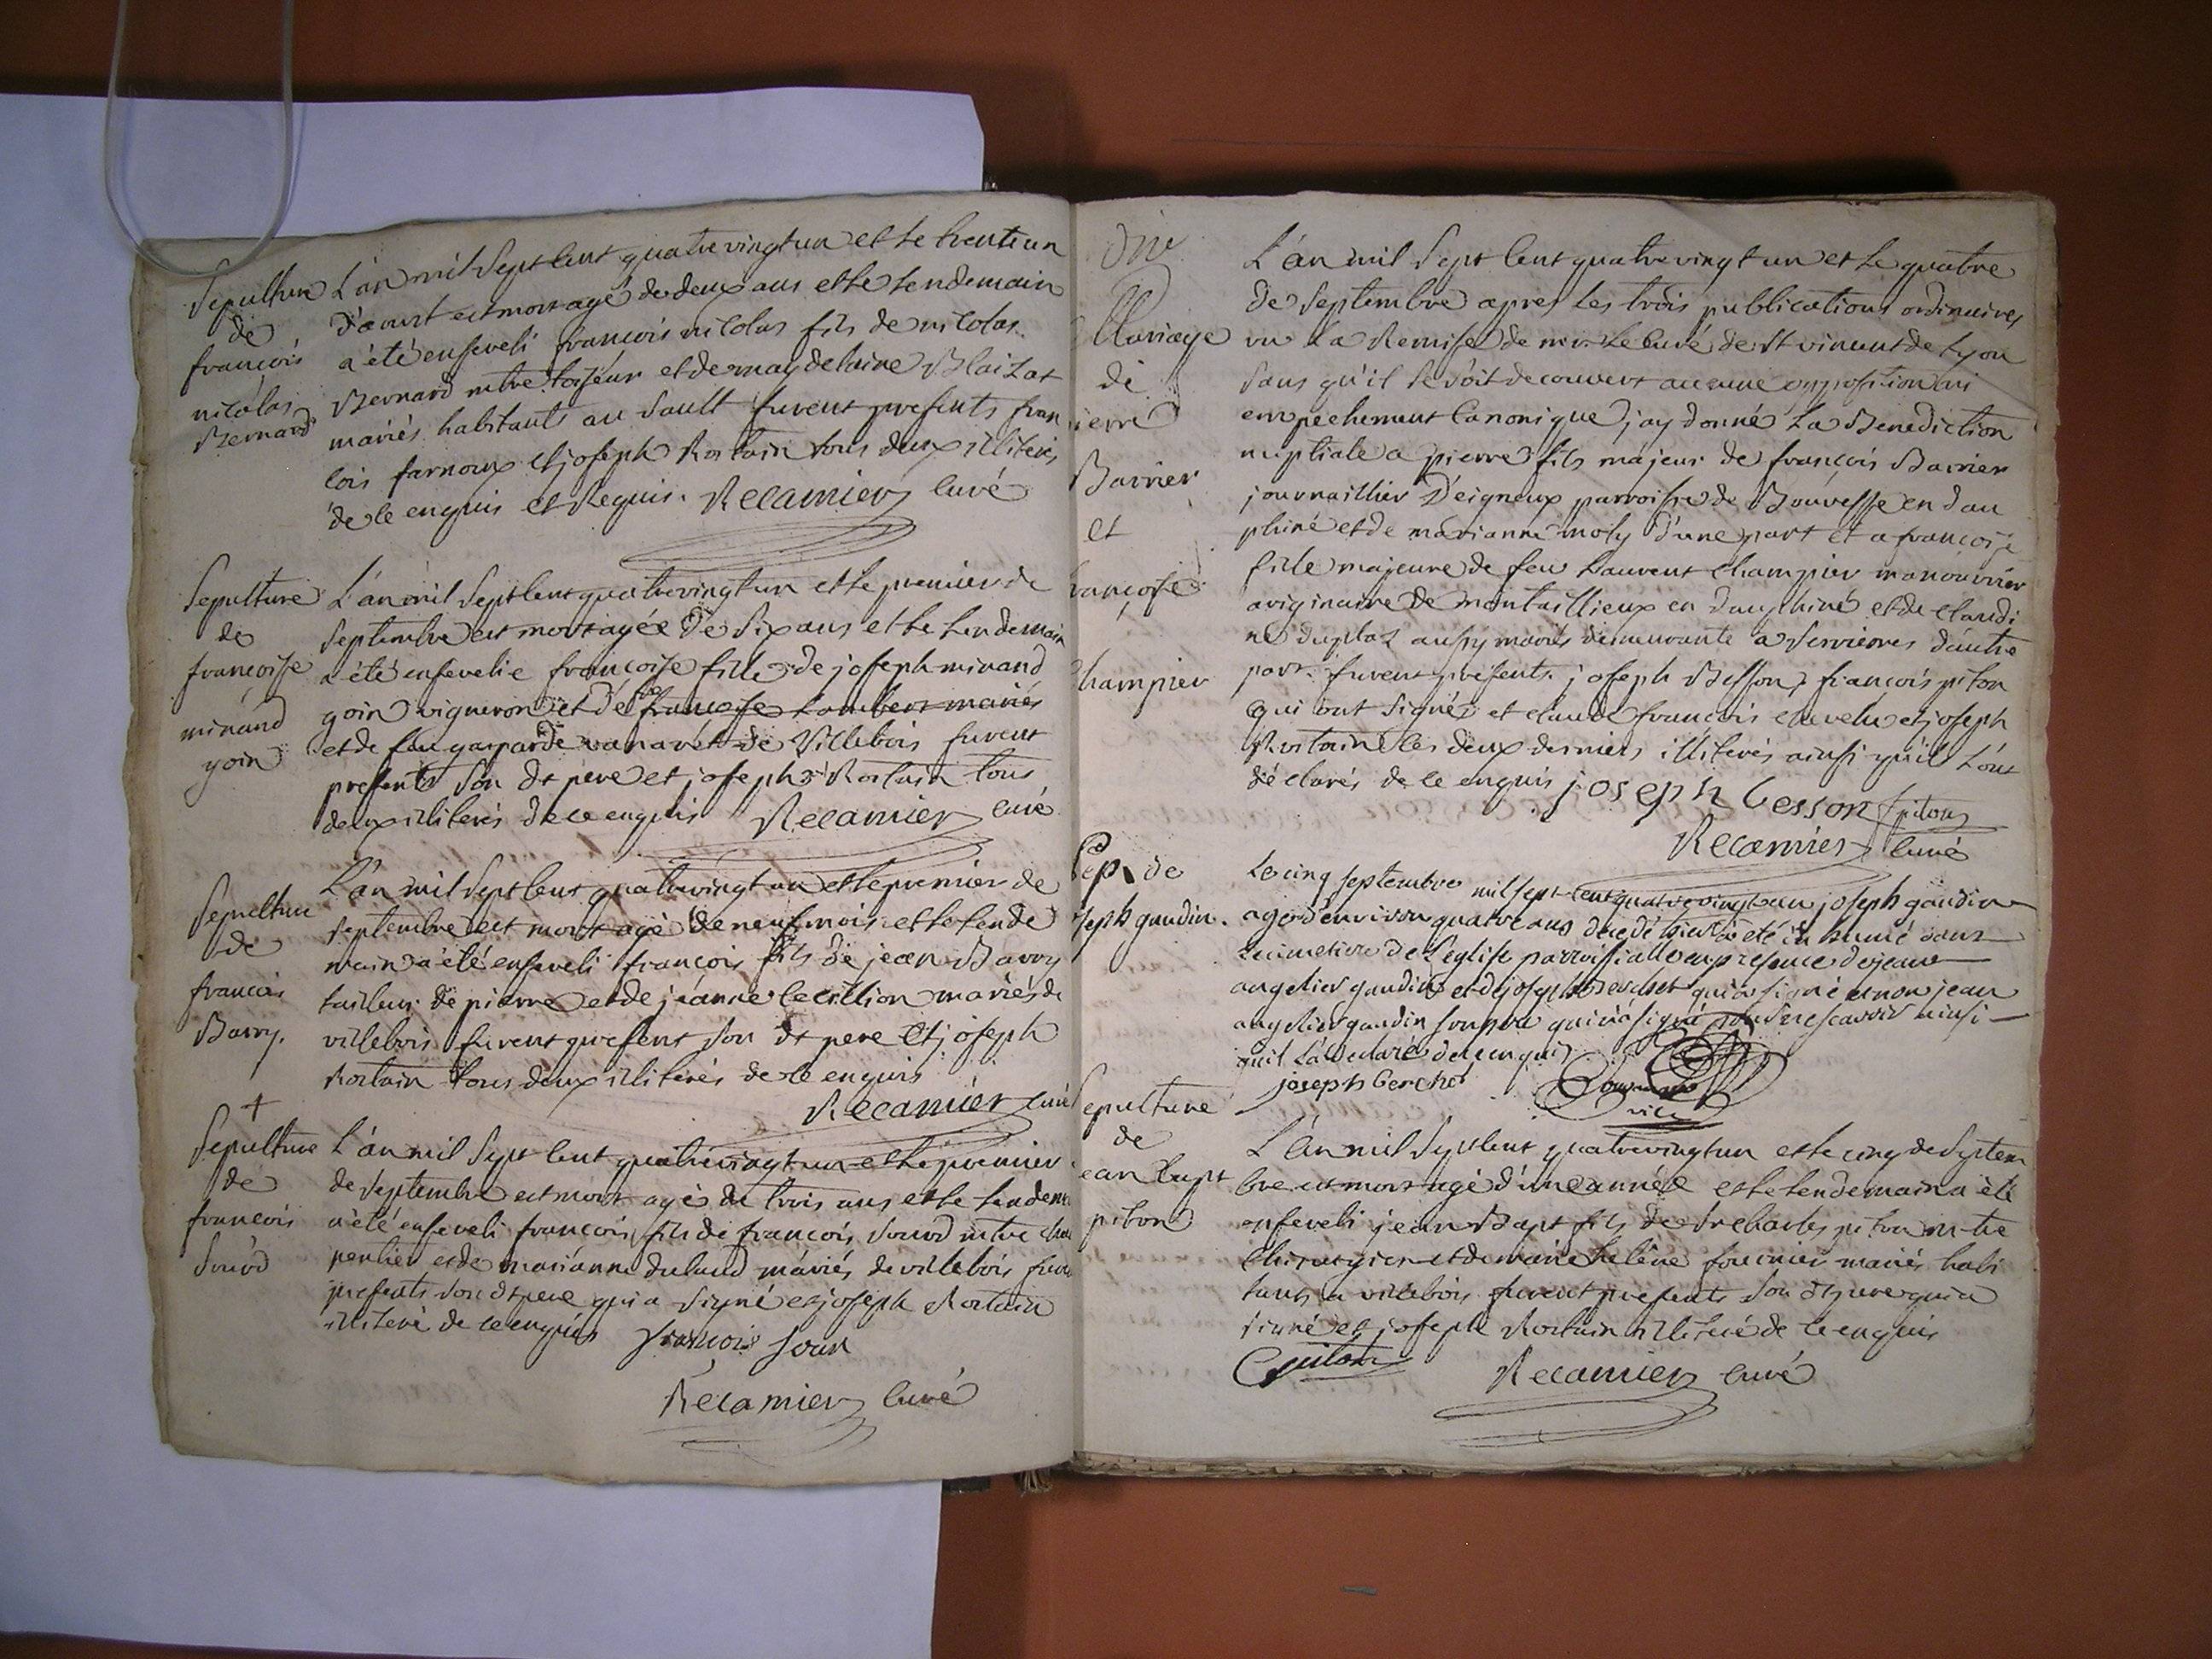 Sepulture
de
francois
nicolas
Bernard
L'an mil sept cent quatre vingt un et le trente un
d'aoust est mort agé de deux ans et le lendemain
a été enseveli francois nicolas fils de nicolas
Bernard mtre toiseur et de magdelaine Blaizat
mariés habitants au Sault furent presents fran
cois farnoux et joseph Rostain tous deux illiterés
de ce enquis et Requis. Recamier curé
Sepulture
de
francoise
minand
goin
L'an mil sept cent quatre vingt un et le premier de
septembre est mort agée de six ans et le lendemain
a été ensevelie francoise fille de joseph minand
goin vigneron et de francoise Lambert mariés
et de feu gasparde vanaret de Villebois furent
presents son dt pere et joseph Rostain tous
deux illiterés de ce enquis Recamier curé
Sepulture
de
francois
Barry.
L'an mil sept cent quatre vingt un et le premier de
septembre est mort agé de neuf mois et le lende
main a été enseveli francois fils de jean Barry
tailleur de pierre et de jeanne mariés de
villebois furent present son dt pere et joseph
Rostain tous deux illiterés de ce enquis
Recamier curé
+
Sepulture
de
francois
Sourd
L'an mil sept cent quatre vingt un et le premier
de septembre est mort agé de trois ans et le lendem
a été enseveli francois fils de francois Sourd mtre char
pentier et de marianne dulaud mariés de villebois furen
presents son dt pere qui a signé et joseph Rostain
illiteré de ce enquis francois Sour
Recamier curé
Mariage
de
ierre
Barrier
et
rancoise
hampier
L'an mil sept cent quatre vingt un et le quatre
de septembre apres les trois publications ordinaires
vu la Remise de mr le curé de st vincent de Lyon
sans qu'il se soit decouvert aucune opposition ni
empechement canonique j'ay donné la Benediction
nuptiale a pierre fils majeur de francois Barrier
journaillier d'eigneux parroisse de Bouvesse en dau
phiné et de marianne moly d'une part et a francoise
fille majeure de feu Laurent Champier manouvrier
originaire de montaillieux en dauphiné et de claudi
ne duplaz aussy mariés demeurante a Serrieres d'autre
part. furent presents joseph Besson, francois piton
qui ont signés et claude francois chevelu et joseph
Rostain les deux derniers illiterés ainsi qu'il l'ont
déclarés de ce enquis joseph besson fpiton
Recamier curé
Sep. de
seph gaudin.
Le cinq septembre mil sept cent quatre vingt un joseph gaudin
agé d'environ quatre ans decedé hier a eté in humé dans
le cimetiere de l'eglise parroissialle en presence de jean
angelier gaudin et de joseph berchet qui a signé et non jean
angelier gaudin son pere qui n'a signé pour ne scavoir ainsi
quil l'a declaré de ce enquis
joseph berchet
vic
epulture
de
ean bapt
piton
L'an mil sept cent quatre vingt un et le cinq de septem
bre est mort agé d'une année et le lendemain a été
enseveli jean Bapt fils de Sr charles piton mtre
chirurgien et de marie helêne fournier mariés habi
tants a villebois furent presents son dt pere qui a
signé et joseph Rostain illiteré de ce enquis
Cpiton Recamier curé